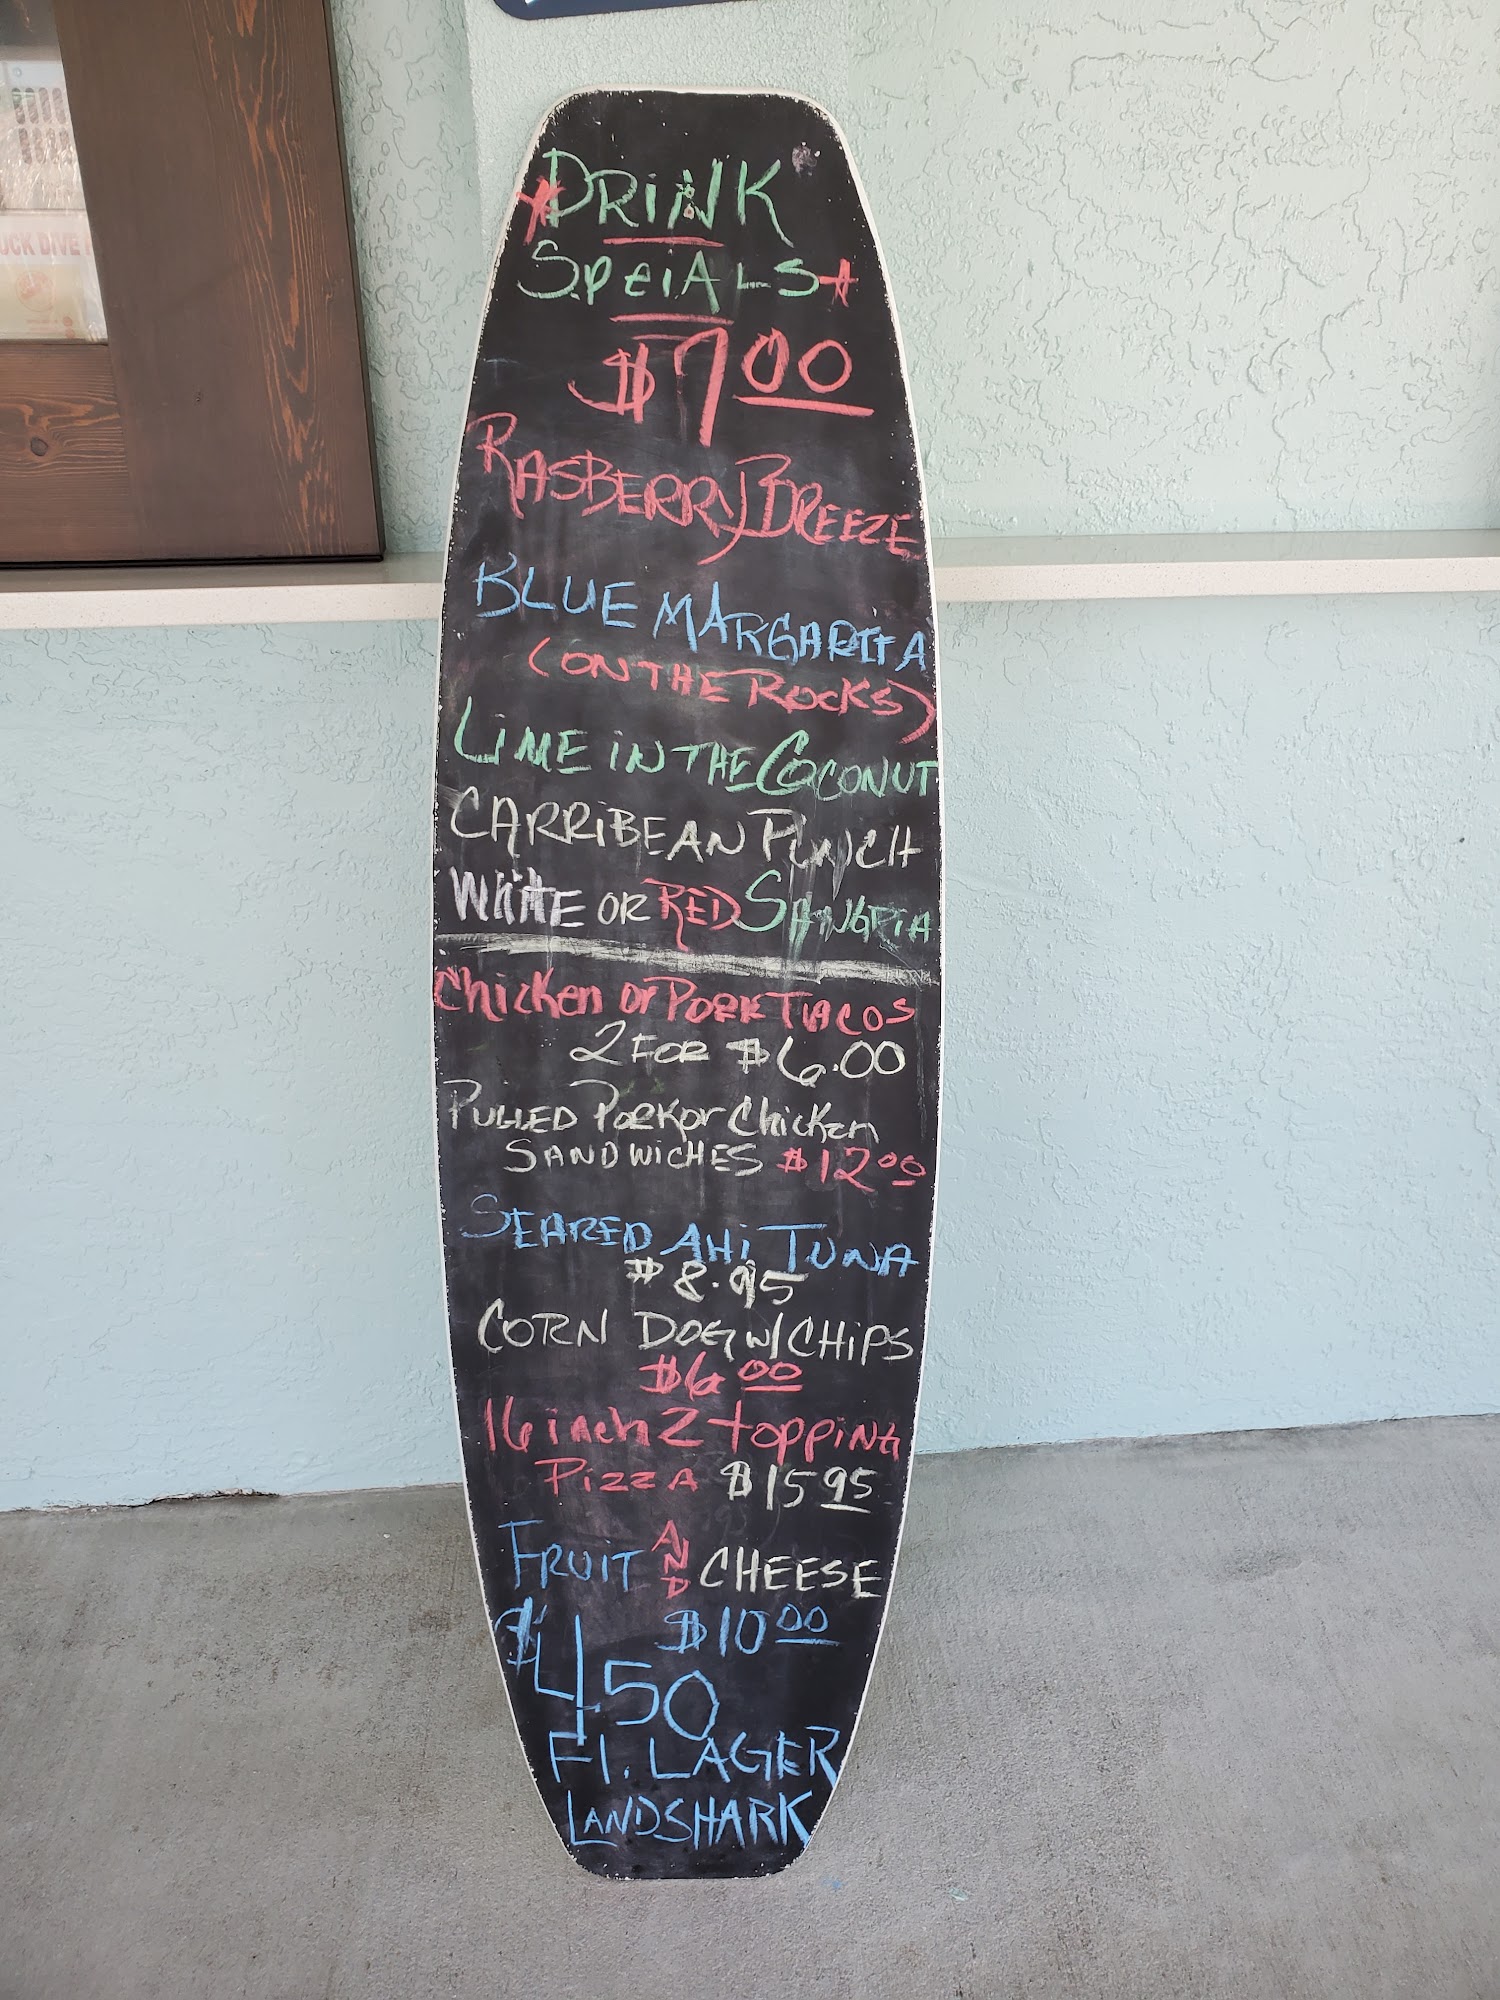 DRiNK
SpeiALS
$7.00
RASBERRY BREEZE
BLUE MARGARITA
(ON THE ROCKS)
LiME iN THE COCONUT
CARRiBEAN PUNCH
WHITE OR RED SANGRIA
Chicken or PORK TACOS
2 FOR $6.00
PULLED PORK or Chicken
SANDWICHES $12.00
SEARED AHi TUNA
$8.95
CORN DOG W/ CHiPS
$6.00
16 inch 2 toppiNG
PiZZA $15.95
FRUIT AND CHEESE
$10.00
$4.50
Fl. LAGER
LANDSHARK
UCK DIVE